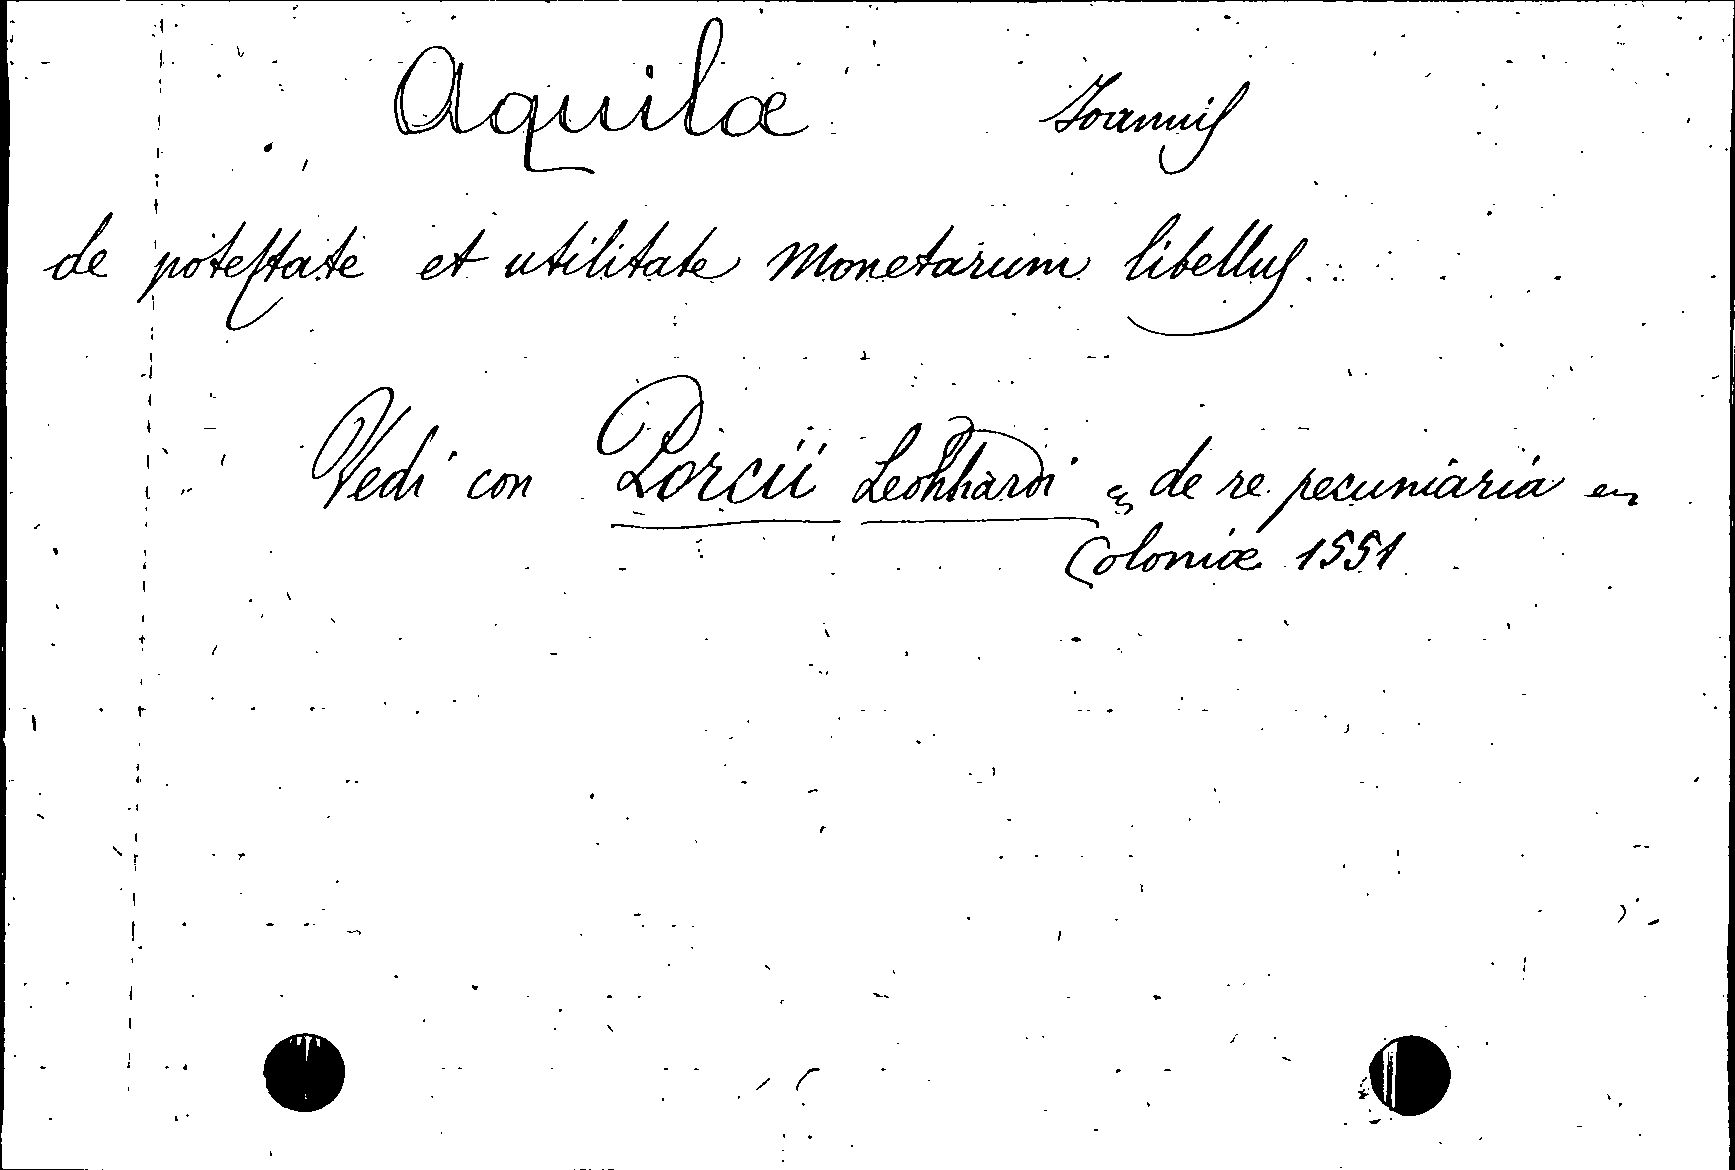 Aquilæ Joannis
de potestate et utilitate Monetarum libellus
Vedi con Porcii Leonhardi „ de re pecuniaria „
Coloniæ 1551